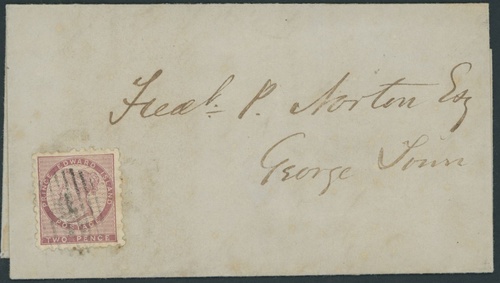 Fredk. P. Norton Esq
George Town
PRINCE EDWARD ISLAND
POSTAGE
TWO PENCE